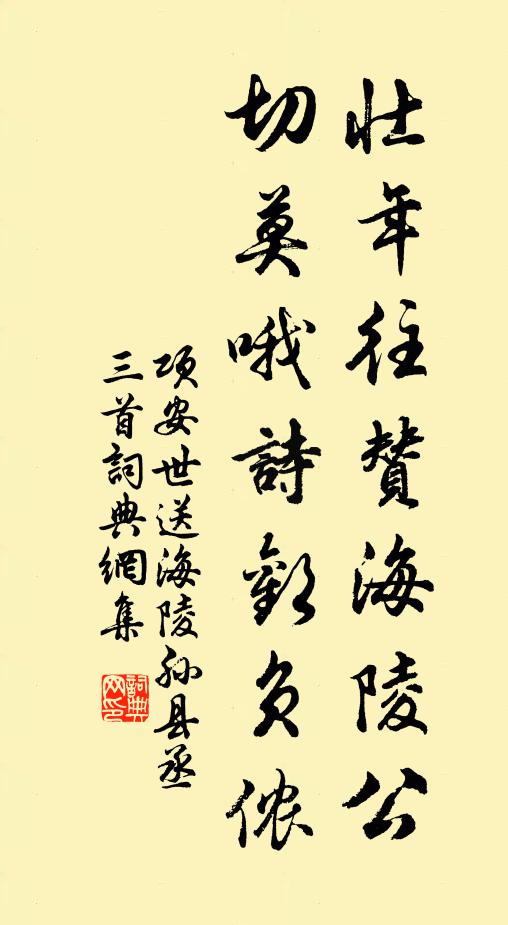 壮年往赞海陵公
切莫哦詩歎负侬
项安世送海陵孙县丞
三首詞典網集
詞典网印